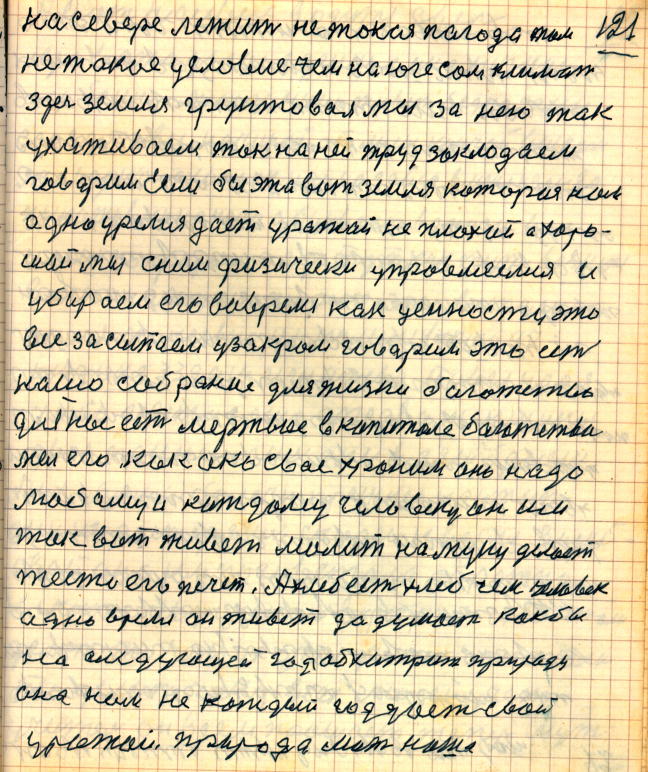 на севере лежит не токая погода там 121
не такое условие чем на юге сом климат
здес земля грунтовая мы за нею так
ухаживаем ток на ней труд закладаем
говорим если бы эта вот земля которая нам
одно уремя дает уражай не плохой а хоро-
шай мы сним физически управляемия и
убираем его вовремя как ценность, это
все засыпаем узакром говарим это ест
нашо собрание для жизни богатетво
для нас ест мертвое в капитале богатетва
мы его как око свое храним оно надо
любому и каждому человеку он им
так вот живет молит на муку делает
тесто его печет. А хлеб ест хлеб чем человек
адно время он живет да думает как бы
на следующей год обхитрит природу
она нам не каждый год дает свой
уражай. природа мат наша